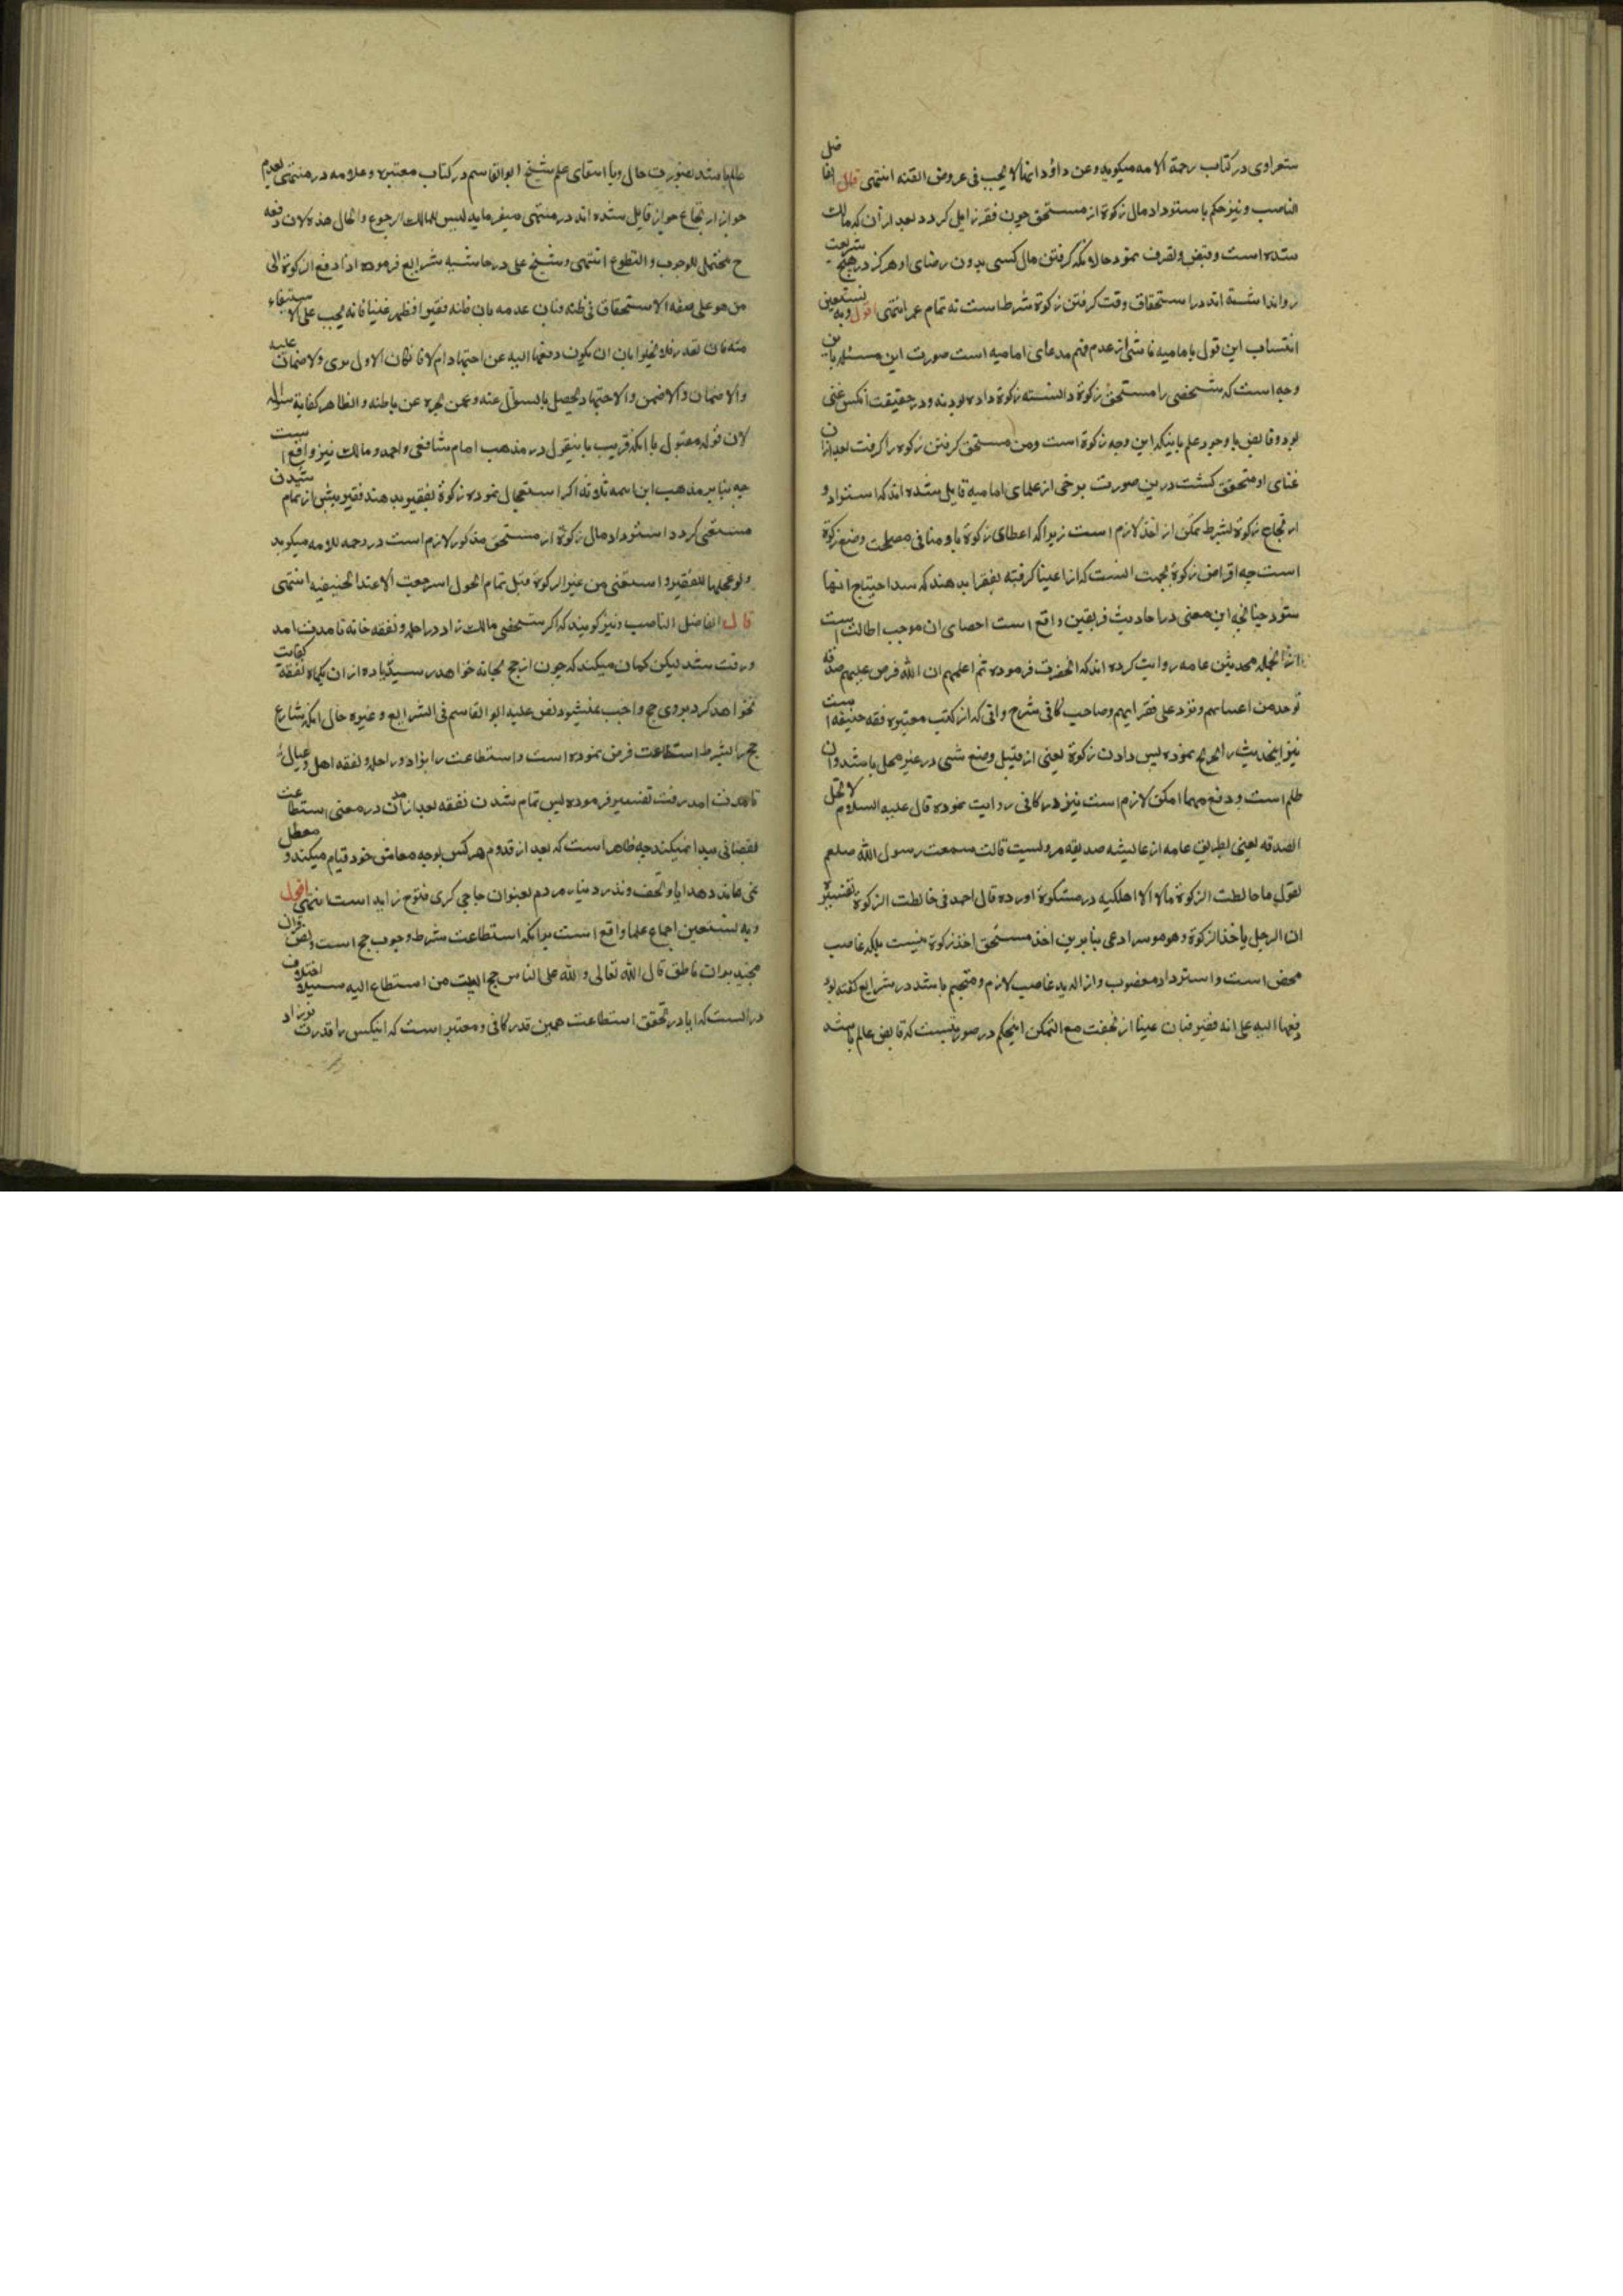 ستعراوی در کتاب رحمة الامه میکوید و عن داؤد انها لا یجب فی عروض القنه انتهی قال الفاضل
الناصب و نیز حکم باسترداد مال زکوة از مستحق چون فقر زایل کردد بعد از آن که مالک
شده است و قبض و تصرف نمود حالانکه کرفتن مال کسی بدون رضای او هرکز در هیچ شریعت
روا نداشته اند در استحقاق وقت کرفتن زکوة شرط است نه تمام عمر انتهی اقول و به نستعین
انتساب این قول بامامیه ناشی از عدم فهم مدعای امامیه است صورت این مسئله باین
وجه است که شخصی را مستحق زکوة دانسته زکوة داده بودند و در حقیقت آنکس غنی
بود و قابض با وجود علم باینکه این وجه زکوة است و من مستحق کرفتن زکوة را کرفت بعد ازان
غنای او متحقق کشت درین صورت برخی از علمای امامیه قایل شده اند که استرداد و
ارتجاع زکوة بشرط تمکن از اخذ لازم است زیرا که اعطای زکوة باو منافی مصلحت وضع زکوة
است چه اقراض زکوة بجهت انست که از اغنیا کرفته بفقرا بدهند که سد احتیاج انها
شود چنانچه این معنی در احادیث فریقین واقع است احصای ان موجب اطالت است
ازانجمله محدثین عامه روایت کرده اند که انحضرت فرموده ثم اعلمهم ان الله فرض علیهم صدقه
توخذ من اغنیائهم و ترد علی فقرائهم و صاحب کافی شرح وافی که از کتب معتبره فقه حنیفه است
نیز اینحدیث را تخریج نموده پس دادن زکوة یعنی از قبیل وضع شی در غیر محل باشد و ان
ظلم است و دفع مهما امکن لازم است نیز در کافی روایت نموده قال علیه السلام لا تحل
الصدقه لغنی بطریق عامه از عایشه صدیقه مرویست قالت سمعت رسول الله صلعم
یقول ما خالطت الزکوة مالا الا اهلکته در مشکوة اورده قال احمد فی خالطت الزکوة تفسیره
ان الرجل یأخذ الزکوة و هو موسر ادعی بنابرین اخذ مستحق اخذ زکوة نیست بلکه غاصب
محض است و استرداد مغضوب و ازاله ید غاصب لازم و متحتم باشد در شرایع کفته لو
دفعها الیه علی انه فقیر فبان غنیا ارتجعت مع التمکن اینحکم در صورتیست که قابض عالم باشد
عالم باشد بصورت حال و با انتفای علم شیخ ابوالقاسم در کتاب معتبره و علامه در منتهی بعدم
جواز ارتجاع جواز قایل شده اند در منتهی میفرماید لیس للمالک الرجوع و الحال هذه لان دفعه
ح محتمل للوجوب و التطوع انتهی و شیخ علی در حاشیه شرایع فرموده اذا دفع الزکوة الی
من هو علی صفه الاستحقاق فی ظنه فبان عدمه بان ظنه فقیرا فظهر غنیا فانه یجب علی الاستیفاء
منه فان تعذر فلا یخلو اما ان یکون دفعها الیه عن اجتهاد ام لا فان کان الاول بری و لا ضمان علیه
والا ضمان والا ضمن والاجتهاد یحصل بالسؤال عنه و عمن یخبره عن باطنه و الظاهر کفایة سواله
لان قوله مقبول با انکه قریب باینقول در مذهب امام شافعی و احمد و مالک نیز واقع است
چه بنابر مذهب این ایمه ثلاثه اکر استعجال نموده زکوة بفقیر بدهند فقیر پیش از تمام شدن
مستغنی کردد استرداد مال زکوة از مستحق مذکور لازم است در رحمه للامه میکوید
و لو عجلها للفقیر و استغنی من غیر الزکوة قبل تمام الحول استرجعت الا عند الحنیفیه انتهی
قال الفاضل الناصب و نیز کویند که اکر شخصی مالک زاد و راحله و نفقه خانه تا مدت امد
و رفت شد لیکن کمان میکند که چون از حج بخانه خواهد رسید زیاده از ان یکماه نفقه کفایت
نخواهد کرد بروی حج واجب نمیشود نص علیه ابوالقاسم فی الشرایع و غیره حال انکه شارع
حج را بشرط استطاعت فرض نموده است و استطاعت را بزاد و راحله و نفقه اهل و عیال
تا مدت امد رفت تفسیر فرموده پس تمام شدن نفقه بعد از آمدن در معنی استطاعت
نقصانی پیدا نمیکند چه ظاهر است که بعد از قدوم هرکس بوجه معاش خود قیام میکند و معطل
نمی ماند و هدایا و تحف و نذر و نیاز مردم بعنوان حاجی کری فتوح زاید است انتهی اقول
و به نستعین اجماع علما واقع است برانکه استطاعت شرط وجوب حج است و نص قران
مجید بدان ناطق قال الله تعالی و لله علی الناس حج البیت من استطاع الیه سبیلا اختلاف
درانست که ایا در تحقق استطاعت همین قدر کافی و معتبر است که اینکس را قدرت بر زاد